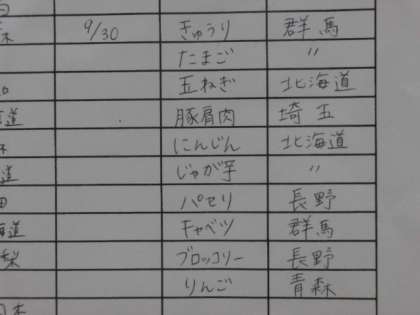 9/30 きゅうり 群馬
たまご 〃
玉ねぎ 北海道
道 豚肩肉 埼玉
にんじん 北海道
道 じゃが芋 〃
田 パセリ 長野
海道 キャベツ 群馬
梨 ブロッコリー 長野
りんご 青森